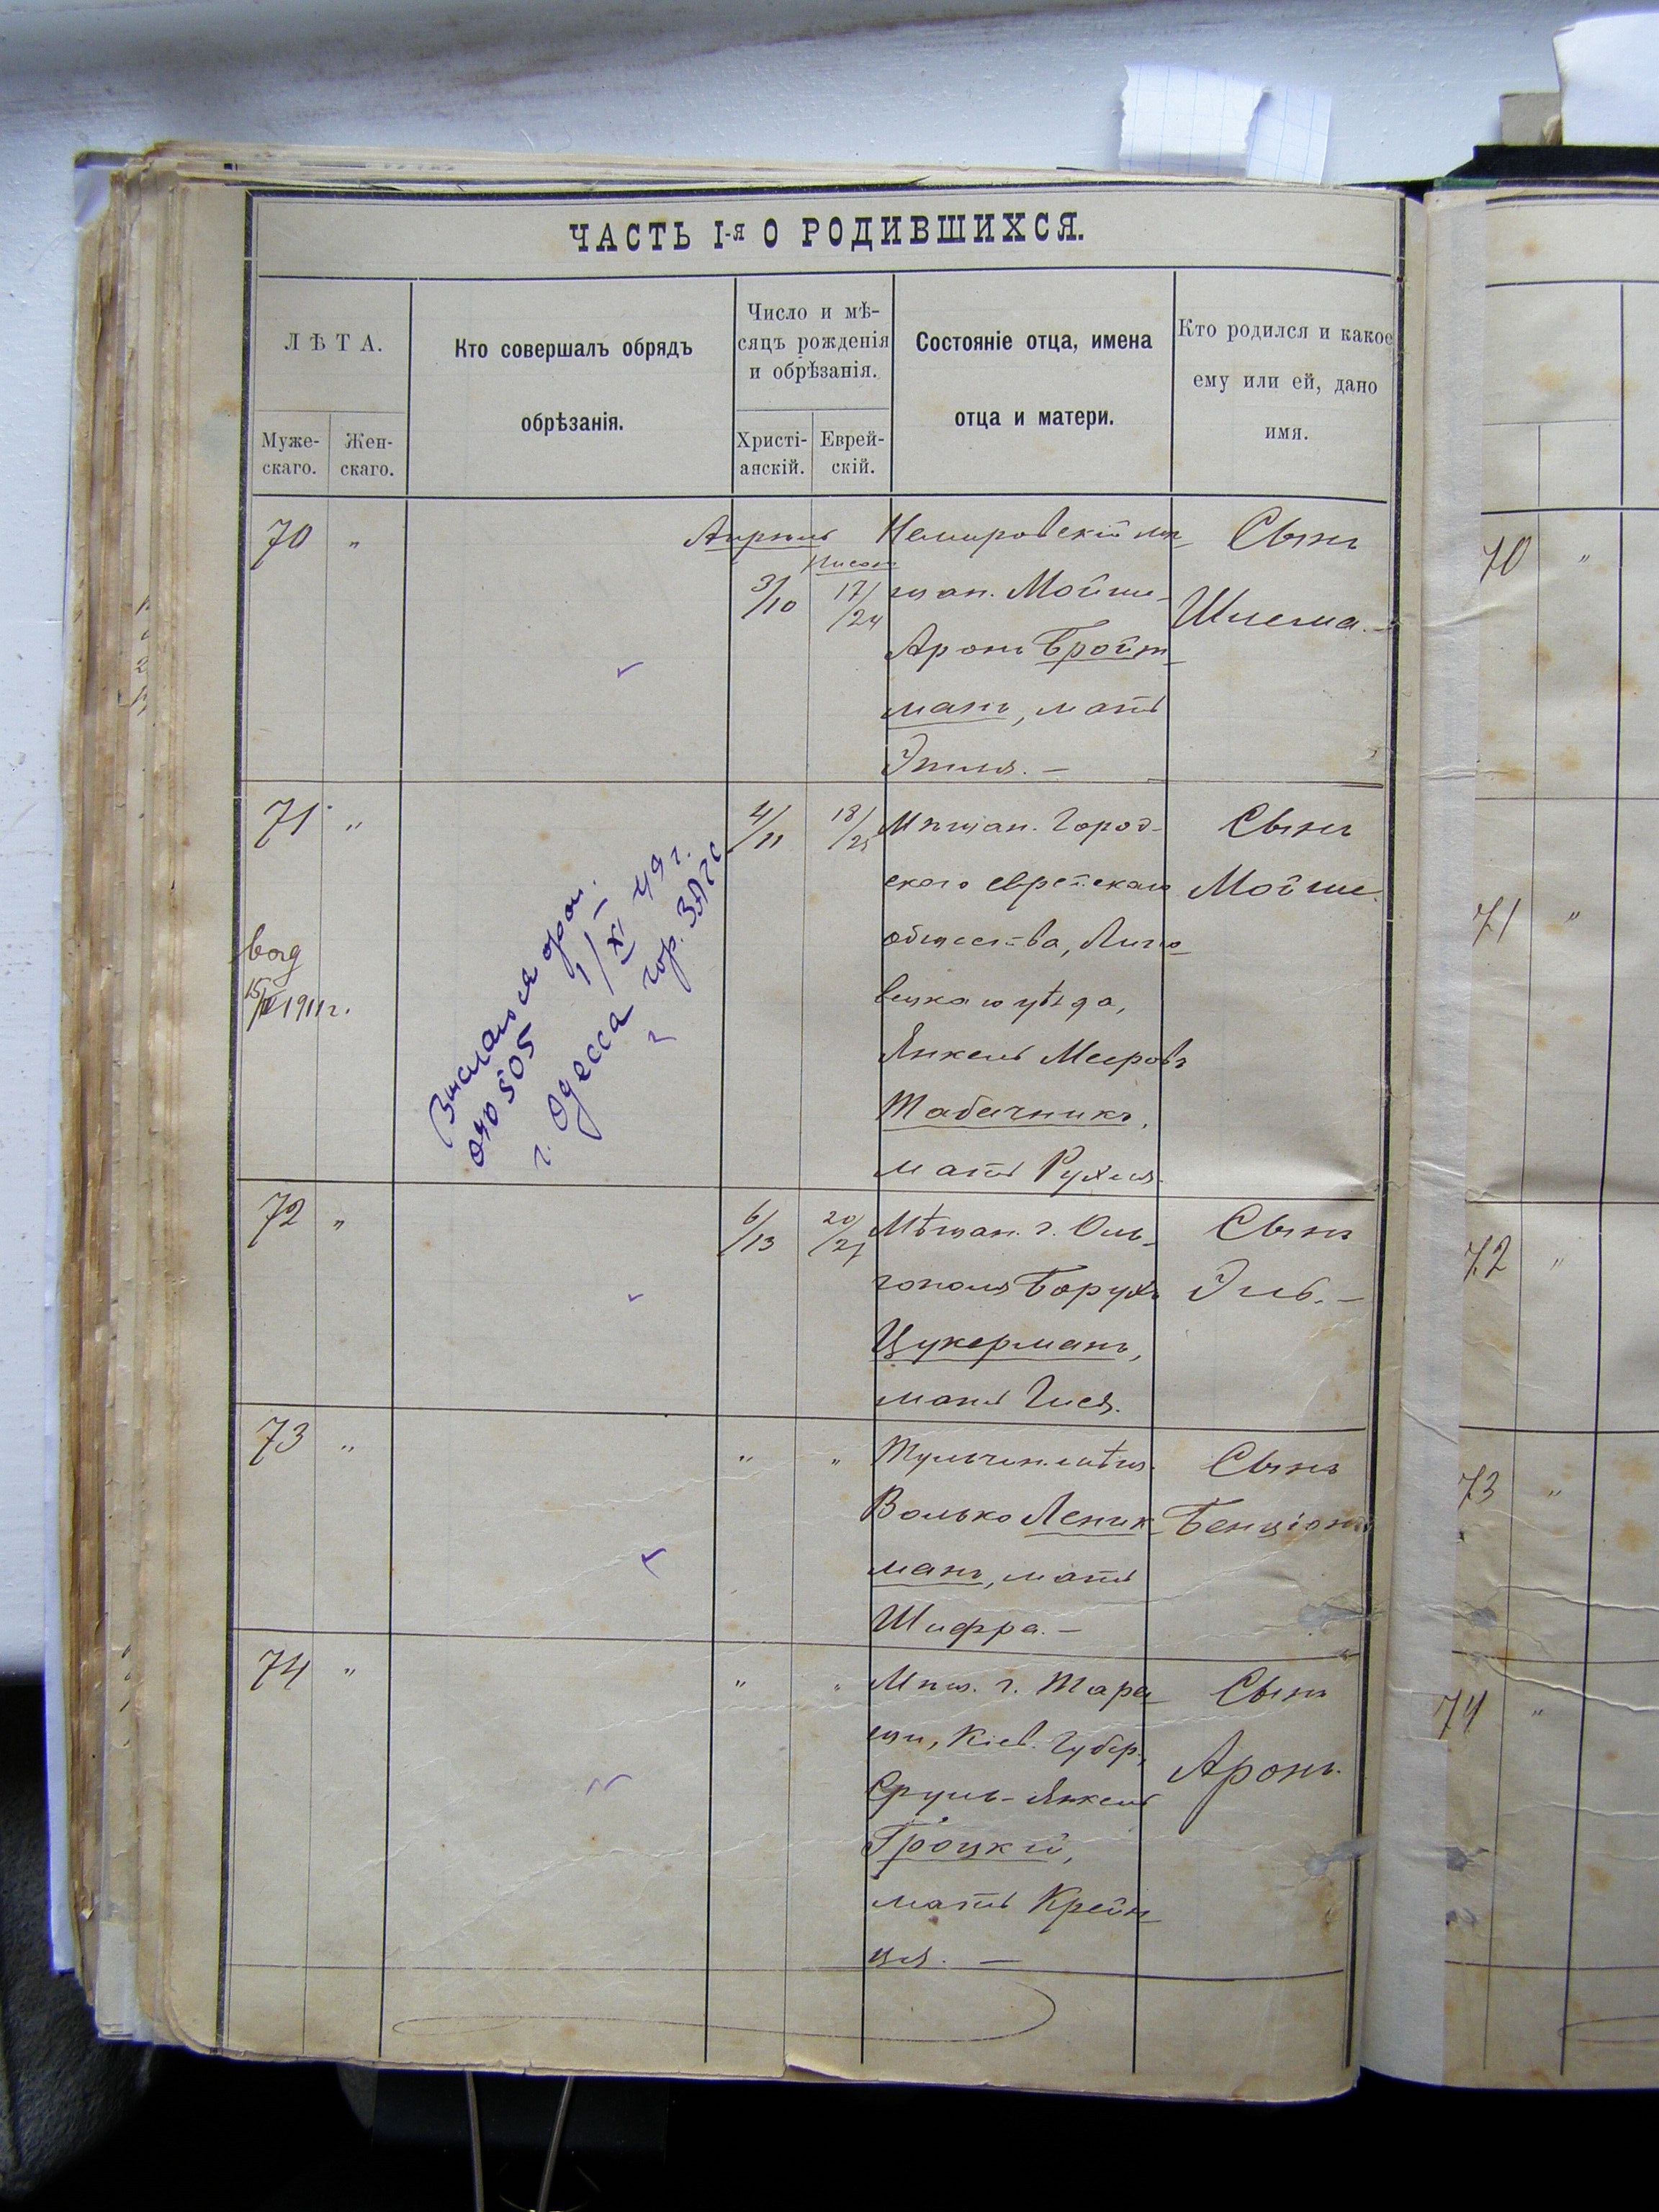 ЧАСТЬ I-я О РОДИВШИХСЯ.
ЛѢТА.
Муже-
скаго.
Жен-
скаго.
Кто совершалъ обрядъ
обрѣзанія.
Число и мѣ-
сяцъ рожденія
и обрѣзанія.
Христі-
анскій.
Еврей-
скій.
Состояніе отца, имена
отца и матери.
Кто родился и какое
ему или ей, дано
имя.
70 "
Апрель
Нисон
3/10 17/24
Немировскій мѣ-
щан. Мойше-
Аронъ Бройт-
манъ, мать
Этля. —
Сынъ
Шлема. —
71 "
15/II 1911 г.
Выслался
040505 1/XI 49 г.
г. Одесса гор. ЗАГС
4/11 18/25
Мѣщан. Город-
скаго еврейскаго
общества, Липо-
вецкаго уѣзда,
Янкель Мееровъ
Табачникъ,
мать Рухля.
Сынъ
Мойше.
72 "
6/13 20/27
Мѣщан. г. Оль-
гополя Борухъ
Цукерманъ,
мать Гися.
Сынъ
Эль. —
73 "
" "
Тульчин. мѣщ.
Волько
манъ, мать
Шифра. —
Сынъ
Бенціонъ
74 "
" "
Мѣщ. г. Тара-
щи, Кіев. Губер.,
Сруль-Янкель
Троцкій,
мать Крейн-
ця. —
Сынъ
Аронъ.
70 "
71 "
72 "
73 "
74 "